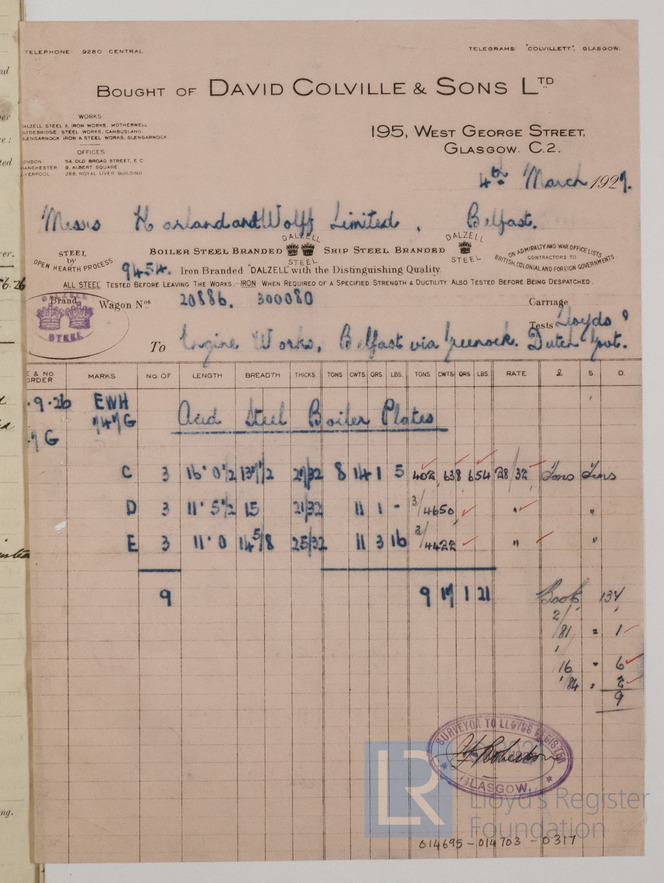 TELEPHONE 9280 CENTRAL
TELEGRAMS "COLVILLETT", GLASGOW.
BOUGHT OF DAVID COLVILLE & SONS LTD
WORKS
DALZELL STEEL & IRON WORKS, MOTHERWELL
CLYDEBRIDGE STEEL WORKS, CAMBUSLANG
GLENGARNOCK IRON & STEEL WORKS, GLENGARNOCK
OFFICES
LONDON 5A OLD BROAD STREET, E.C
MANCHESTER 9, ALBERT SQUARE
LIVERPOOL 288, ROYAL LIVER BUILDING
195, WEST GEORGE STREET,
GLASGOW. C.2.
4th March 1927.
Messrs Harland and Wolff Limited, Belfast.
STEEL by OPEN HEARTH PROCESS
BOILER STEEL BRANDED DALZELL STEEL SHIP STEEL BRANDED DALZELL STEEL
ON ADMIRALTY AND WAR OFFICE LISTS
CONTRACTORS TO
BRITISH, COLONIAL AND FOREIGN GOVERNMENTS
9454. IRON BRANDED "DALZELL" with the DISTINGUISHING QUALITY.
ALL STEEL TESTED BEFORE LEAVING THE WORKS. IRON WHEN REQUIRED OF A SPECIFIED STRENGTH & DUCTILITY ALSO TESTED BEFORE BEING DESPATCHED.
Brand
DALZELL STEEL
Wagon Nos 20886. 300080
Carriage
Tests Lloyds &
To Engine Works, Belfast via Greenock. Dutch Govt.
& NO ORDER MARKS NO. OF LENGTH BREADTH THICKS TONS CWTS QRS LBS. TONS CWTS QRS LBS. RATE £ S. D.
.9.26 EWH
G 747/G
Acid Steel Boiler Plates
C 3 16' 0 1/2 137 1/2 27/32 8 14 1 5 402, 638 654 28/32 Tons Tins
D 3 11' 5 1/2 15 21/32 11 1 - 3/4650 " "
E 3 11' 0 14 5/8 25/32 11 3 16 3/4422 " "
9 9 17 1 21
Book 137
2/81 = 1
16 " 6
'84 " 2
9
SURVEYOR TO LLOYDS REGISTER
Robertson
GLASGOW.
LR Lloyd's Register
Foundation
014695-014703-0317